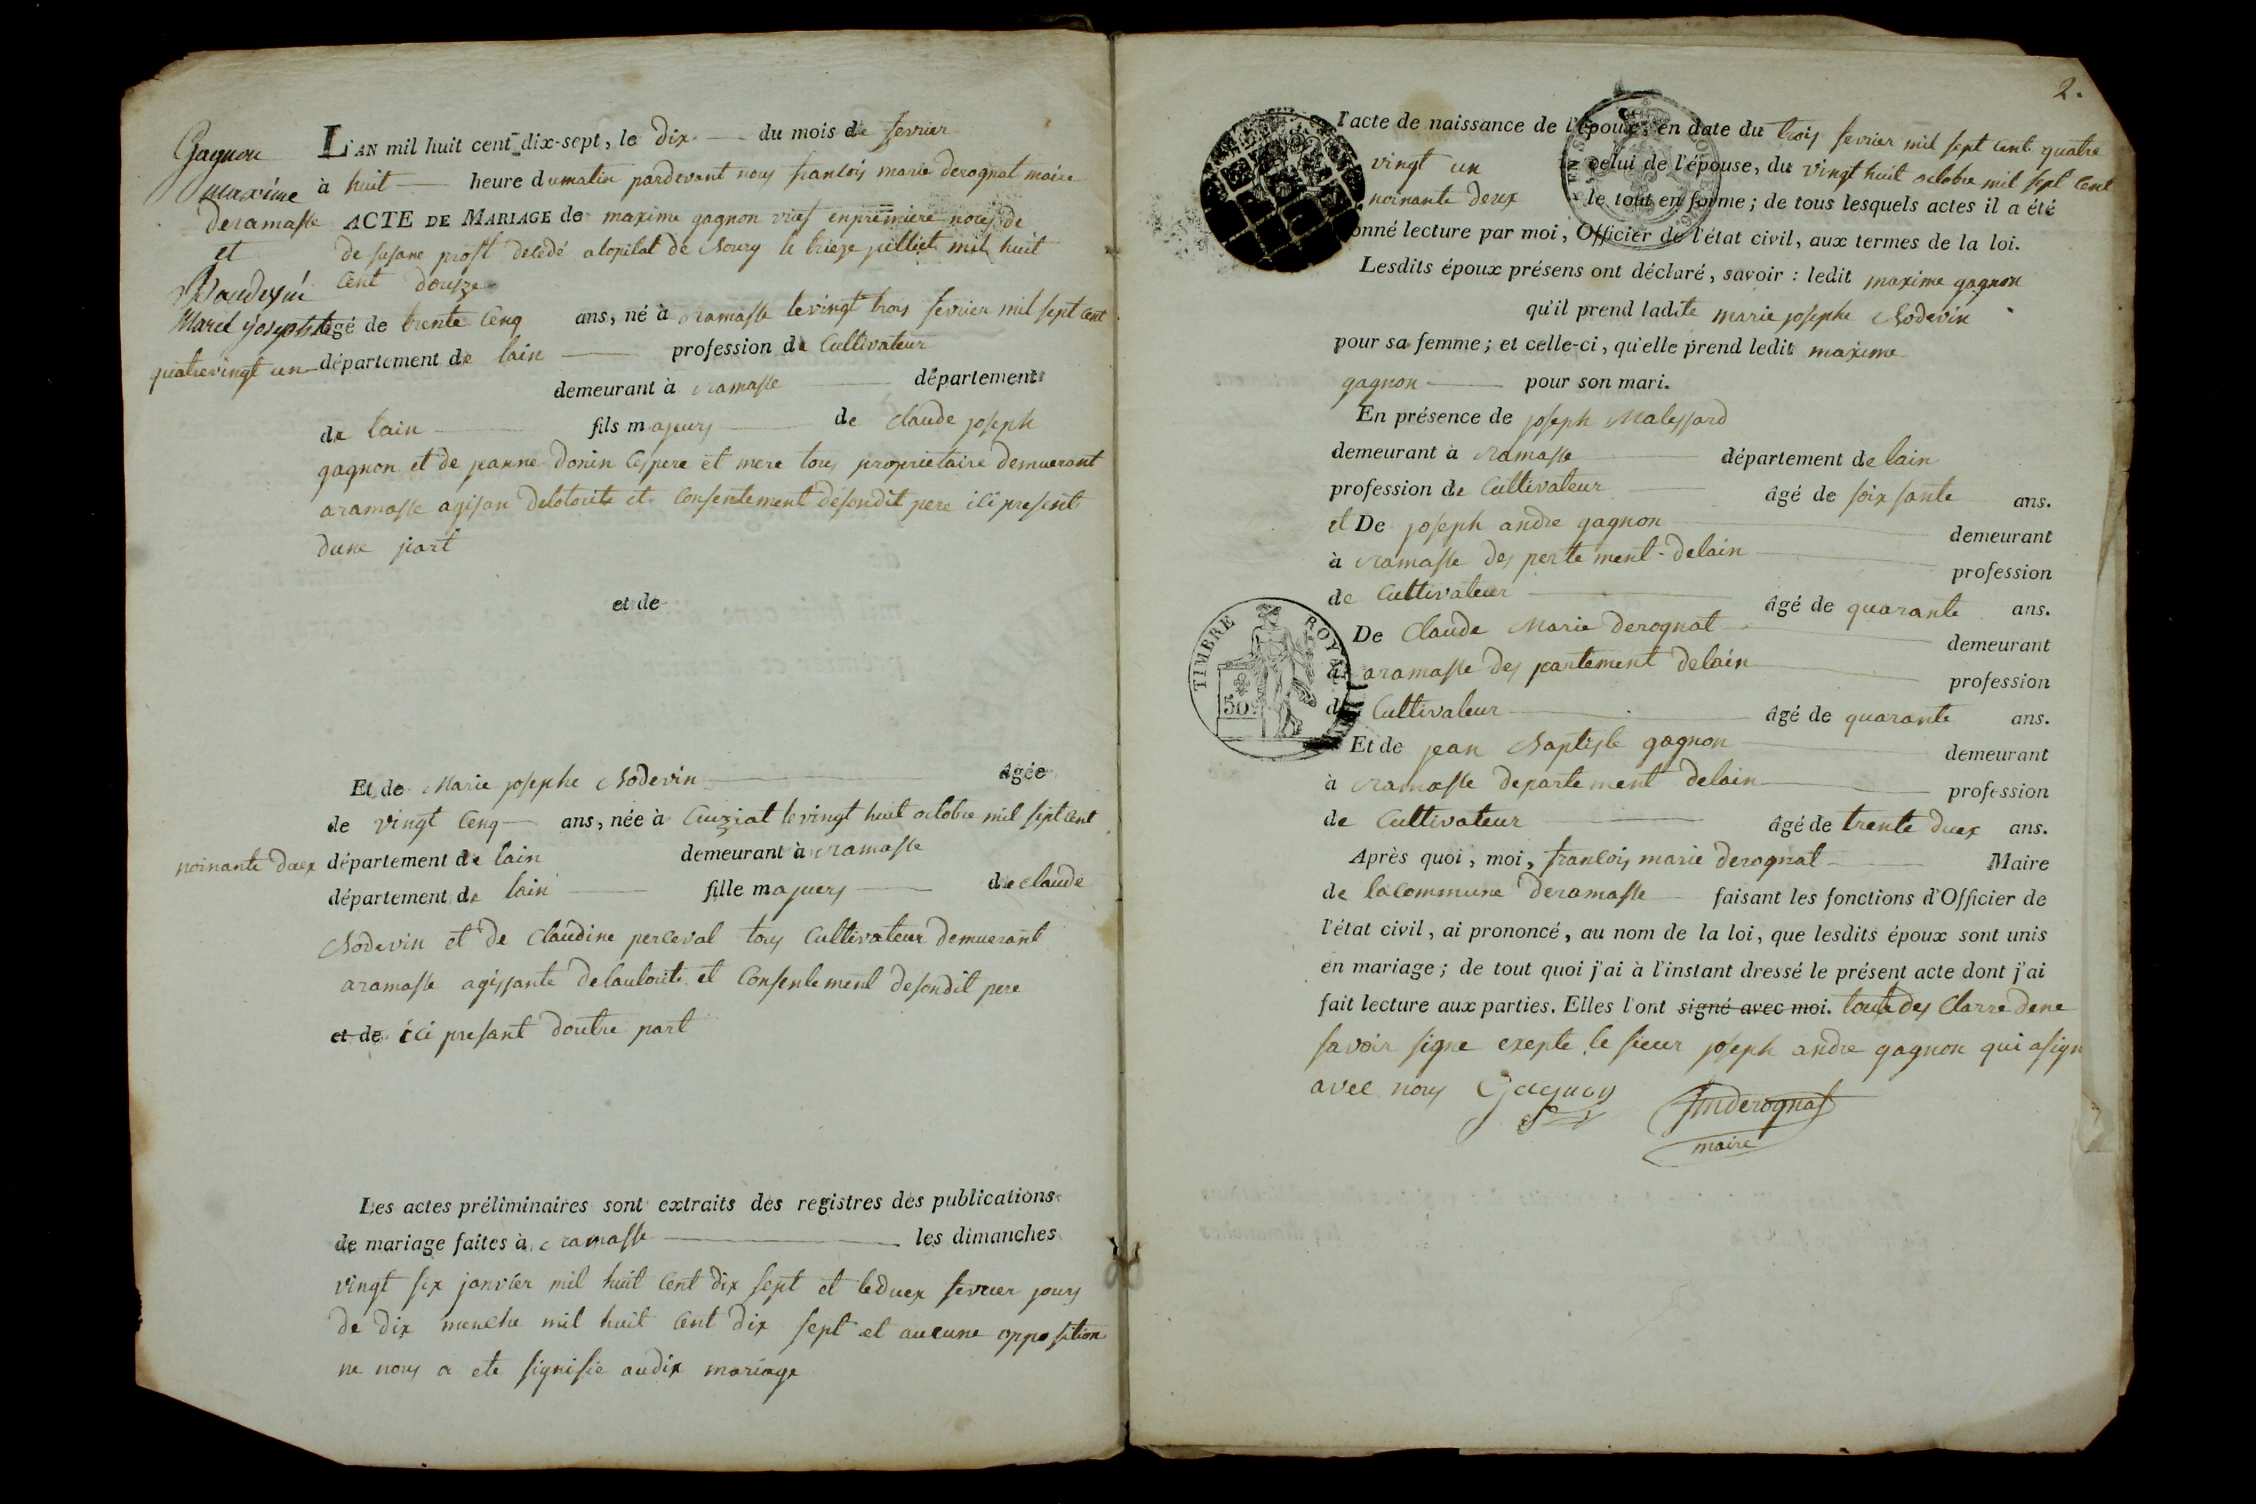 Gagnon
maxime
deramasse
et
Marie josephte
quatrevingt un
L'AN mil huit cent dix-sept, le dix du mois de fevrier
à huit heure dumatin pardevant nous francois marie derognat maire
ACTE DE MARIAGE de maxime gagnon vief enpremiere noces de
de susane prost decedé alopilat de Bourg le treize julliet mil huit
cent douze
âgé de trente cenq ans, né à ramasse levingt trois fevrier mil sept cent
département de lain profession de Cultivateur
demeurant à ramasse département
de lain fils majeurs de claude joseph
gagnon et de jeanne donin ces pere et mere tous proprietaire demuerant
aramasse agisan delotorite et consentement desondit pere ici present
dune part
et de
Et de Marie josephe Bodevin âgée
de vingt cenq ans, née à Cuiziat levingt huit octobre mil sept cent
noinante duex département de lain demeurant à ramasse
département de lain fille majuers de claude
Bodevin et de claudine perceval tous cultivateur demuerant
aramasse agissante delautorite et consentement desondit pere
et de ici presant doutre part
Les actes préliminaires sont extraits des registres des publications
de mariage faites à ramasse les dimanches
vingt six janvier mil huit cent dix sept et leduex fevrier jours
de dix menche mil huit cent dix sept et aucune opposition
ne nous a ete signifie audix mariage
2.
l'acte de naissance de l'époux, en date du trois fevrier mil sept cent quatre
vingt un celui de l'épouse, du vingt huit octobre mil sept cent
noinante deux le tout en forme; de tous lesquels actes il a été
onné lecture par moi, Officier de l'état civil, aux termes de la loi.
Lesdits époux présens ont déclaré, savoir : ledit maxime gagnon
qu'il prend ladite marie josephe Bodevin
pour sa femme; et celle-ci, qu'elle prend ledit maxime
gagnon pour son mari.
En présence de joseph Malessard
demeurant à ramasse département de lain
profession de Cultivateur âgé de soixsante ans.
et De joseph andre gagnon demeurant
à ramasse des perte ment delain profession
de Cultivateur âgé de quarante ans.
De Claude Marie derognat demeurant
à aramasse des partement delain profession
de Cultivateur âgé de quarante ans.
Et de jean Baptiste gagnon demeurant
à ramasse departement delain profession
de Cultivateur âgé de trente duex ans.
Après quoi, moi, francois marie derognat Maire
de lacommune deramasse faisant les fonctions d'Officier de
l'état civil, ai prononcé, au nom de la loi, que lesdits époux sont unis
en mariage; de tout quoi j'ai à l'instant dressé le présent acte dont j'ai
fait lecture aux parties. Elles l'ont signé avec moi. toute des Clarre dene
savoir signe exepte le sieur joseph andre gagnon qui asign
avec nous Gagnon
fmderognat
maire
TIMBRE ROYAL
50